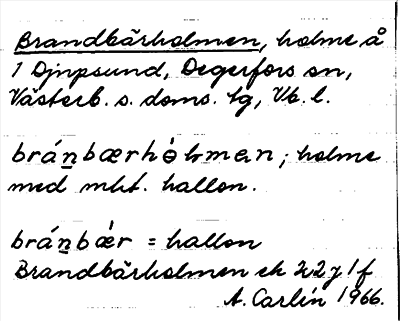 Brandbärholmen, holme å
1 Djupsund, Degerfors sn,
Västerb. s. doms. tg, Vb. l.
bránbærhòlmen; holme
med mkt. hallon.
bránbǽr = hallon
Brandbärholmen ek 22 j 1 f
A. Carlin 1966.